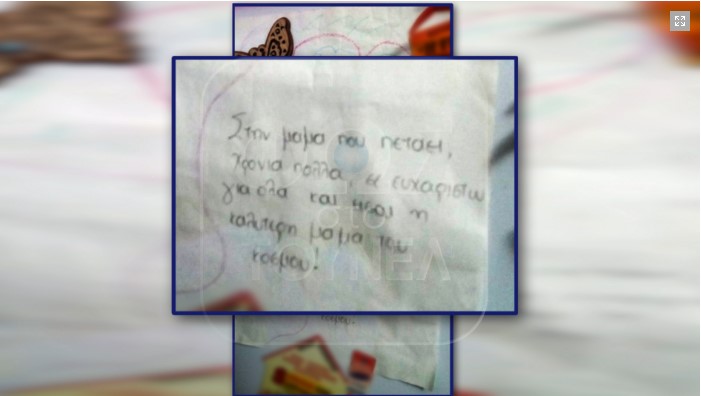 Στην μαμα που πεταει,
Χρονια πολλα, σε ευχαριστω
για ολα και εισαι η
καλυτερη μαμα του
κοσμου!
ΤΟ
ΚΟΥΝΕΛ